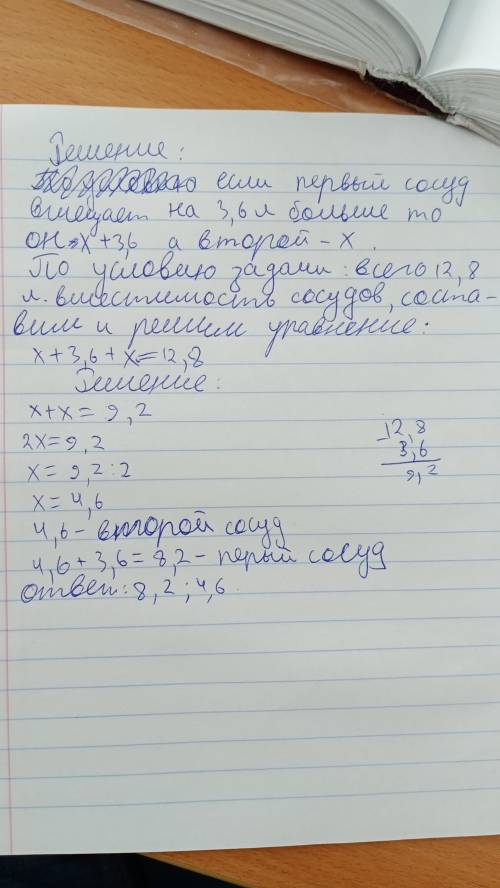 Решение:
если первый сосуд
вмещает на 3,6 л больше то
он - x+3,6 а второй - x.
По условию задачи: всего 12,8
л. вместимость сосудов, соста-
вим и решим уравнение:
x+3,6+x=12,8
Решение:
x+x=9,2
2x=9,2
x=9,2:2
x=4,6
4,6 - второй сосуд
4,6+3,6=8,2 - перый сосуд
ответ: 8,2; 4,6.
12,8
- 3,6
9,2